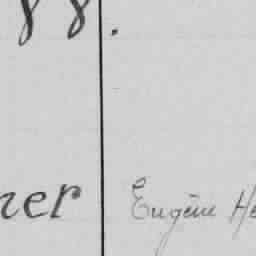 88.
ner Eugène He